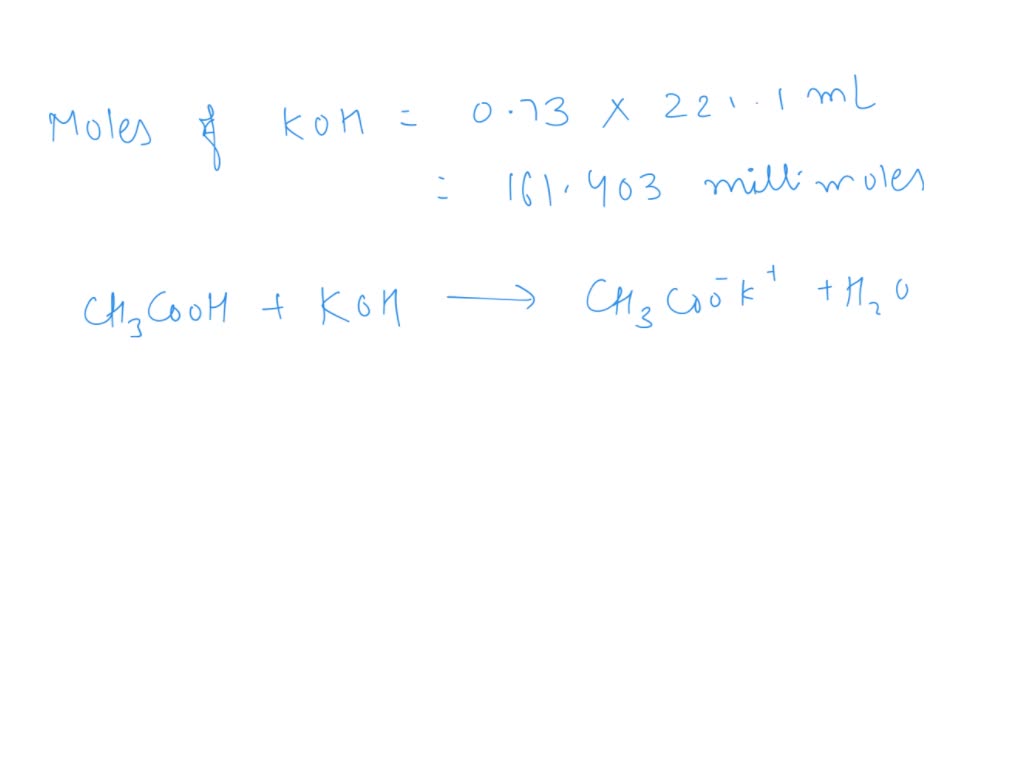 Moles of KOH = 0.73 x 221.1 mL
= 161.403 millimoles
CH₃COOH + KOH ⟶ CH₃COO⁻K⁺ + H₂O